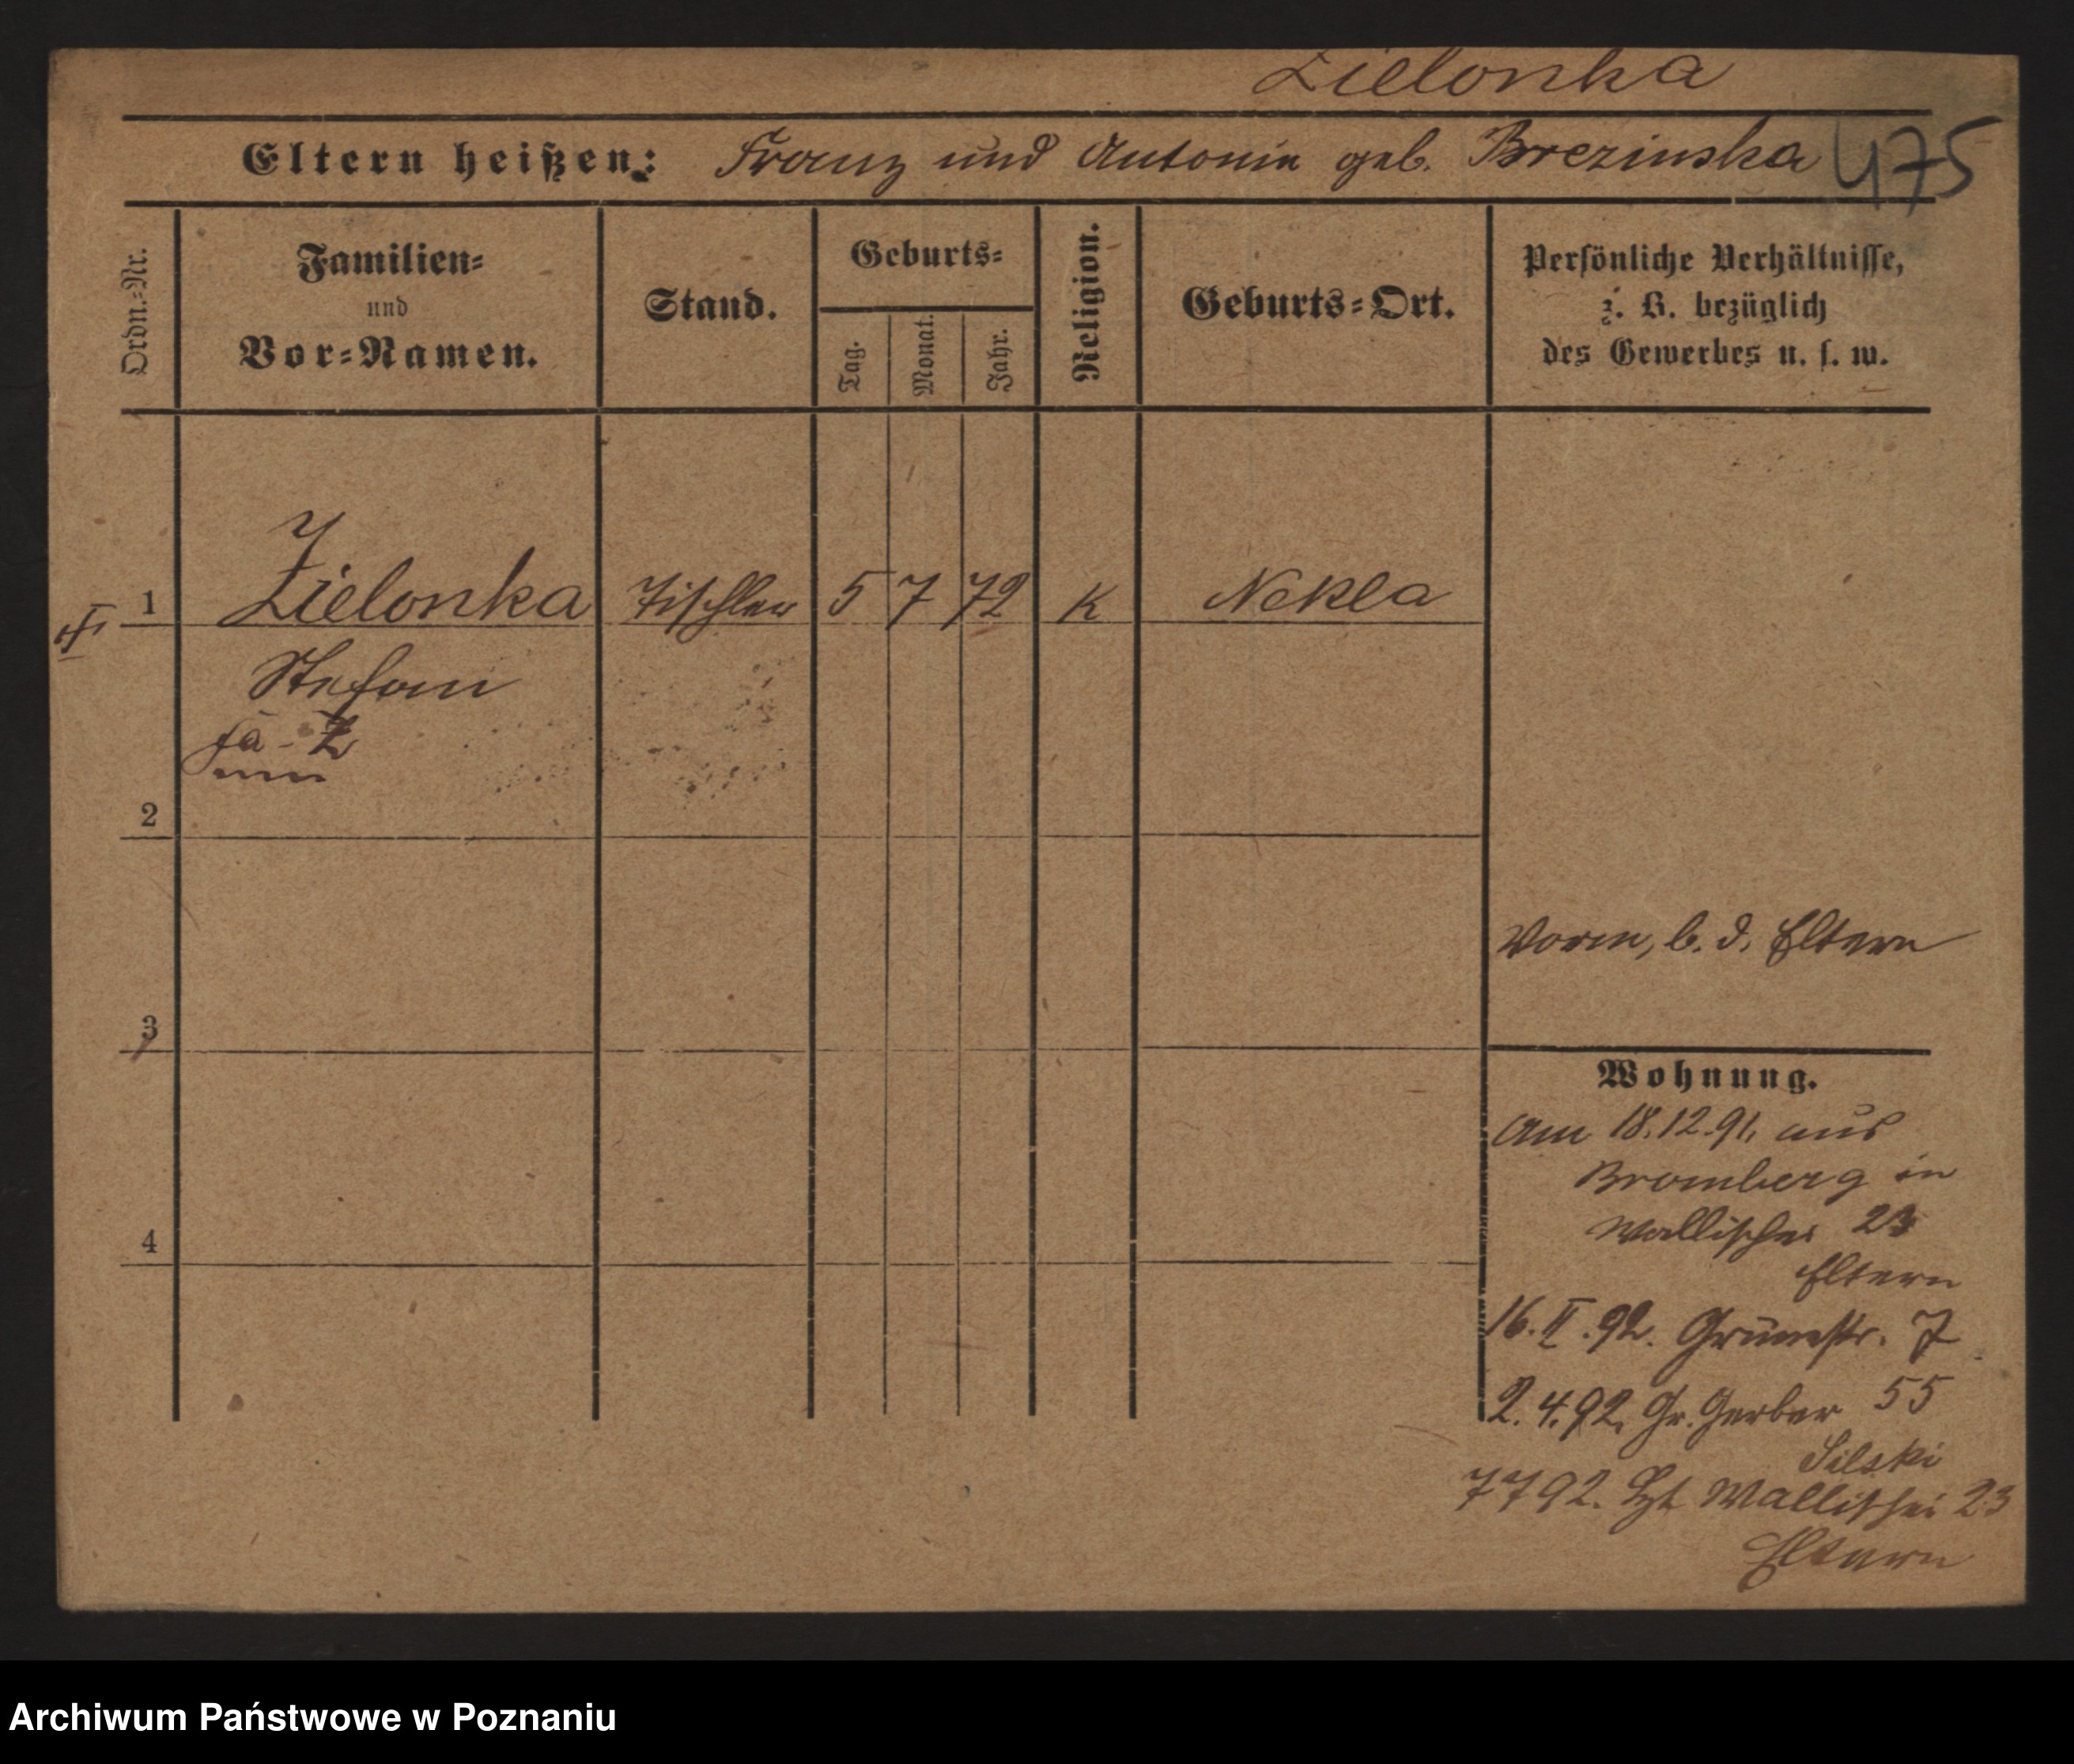 Zielonka
Eltern heißen: Franz und Antonia geb. Brezinska 475
Ordn.=Nr.
Familien=
und
Vor=Namen.
Stand.
Geburts=
Tag.
Monat.
Jahr.
Religion.
Geburts=Ort.
Persönliche Verhältnisse,
z. B. bezüglich
des Gewerbes u. s. w.
1 Zielonka Tischler 5 7 72 K Nekla
Stefan
2
3
4
Vorm, b. d. Eltern
Wohnung.
Am 18.12.91. aus
Bromberg in
Wallischei 23
Eltern
16.II.92. Grünestr. 7
2.4.92. Gr. Gerber 55
Silski
7 7 92. Wallischei 23
Eltern
Archiwum Państwowe w Poznaniu